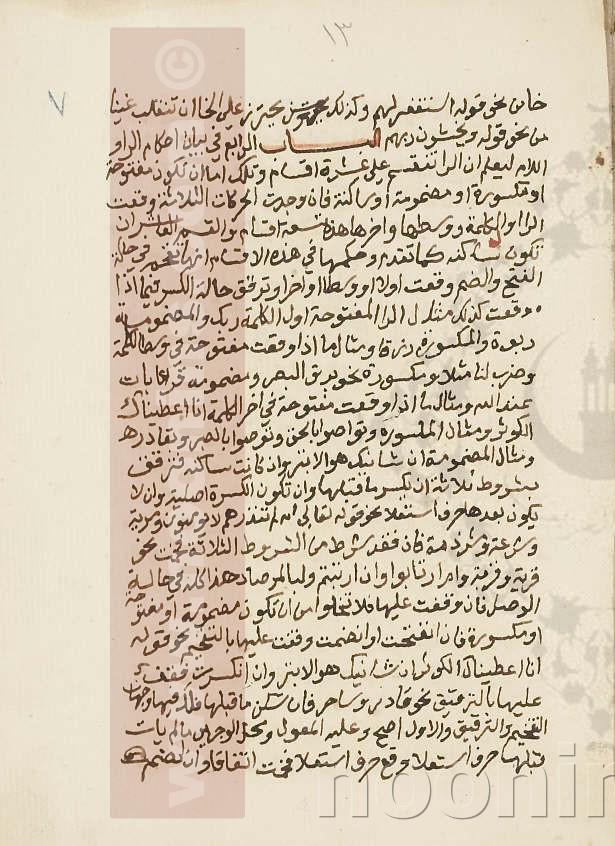 ١٣
٧
خا من نحو قوله استغفر لهم وكذلك يحترز على الخا ان تنقلب غينا
من نحو قوله ويخشون ربهم الباب الرابع في بيان احكام الرا و
اللام ليعلم ان الرا تنقسم على عشرة اقسام وتلك اما ان تكون مفتوحة
او مكسورة او مضمومة او ساكنة فان وجدت الحركات الثلاثة وقعت
الرا اول الكلمة ووسطها واخرها هذه تسعة اقسام والقسم العاشر ان
تكون ساكنه كما تقدم وحكمها في هذه الاقسام انها تفخم في حالة
الفتح والضم وقعت اولا او وسطا او اخرا وترقق حالة الكسر فيما اذا
وقعت كذلك مثال الرا المفتوحة اول الكلمة ربك والمضمومة
ربوة والمكسورة رزقا ومثال ما اذا وقعت مفتوحة في وسط الكلمة
وضرب لنا مثلا ومكسورة نحو برق البصر ومضمومة
عند الله ومثال ما اذا وقعت مفتوحة في اخر الكلمة انا اعطيناك
الكوثر ومثال المكسورة وتواصوا بالحق وتواصوا بالصبر
ومثال المضمومة ان شانيك هو الابتر وان كانت ساكنه فترقق
بشروط ثلاثة ان يكسر ما قبلها وان تكون الكسرة اصلية وان لا
يكون بعدها حرف استعلا نحو قوله تعالى ام لم تنذرهم لا يومنون ومرية
وشرعة وشرذمة فان فقد شرط من الشروط الثلاثة فخمت نحو
قرية وام ارتابوا وان ارتبتم ولبا لمرصاد هذا كله في حالة
الوصل فان وقفت عليها فلا تخلوا من ان تكون مضمومة او مفتوحة
او مكسورة فان انفتحت او انضمت وقفت عليها بالتفخيم نحو قوله
انا اعطيناك الكوثر ان شانيك هو الابتر وان انكسرت فقف
عليها بالترقيق نحو قادر وساحر فان سكن ما قبلها فلك فيها وجهان
التفخيم والترقيق والاول اصح وعليه المعول ومحل الوجهين ما لم يات
قبلها حرف استعلا حرف استعلا فخمت اتفاقا وان انضم
noonir